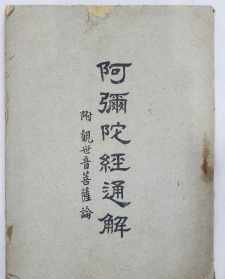 阿彌陀經通解
附 觀世音菩薩論